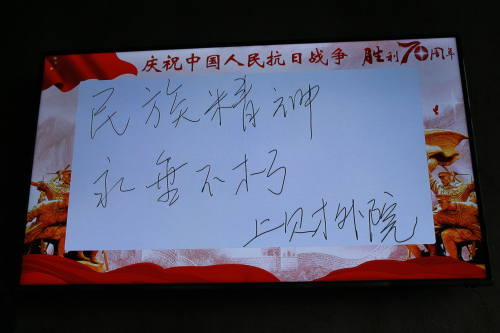 庆祝中国人民抗日战争 胜利70周年
民族精神
永垂不朽
上财外院